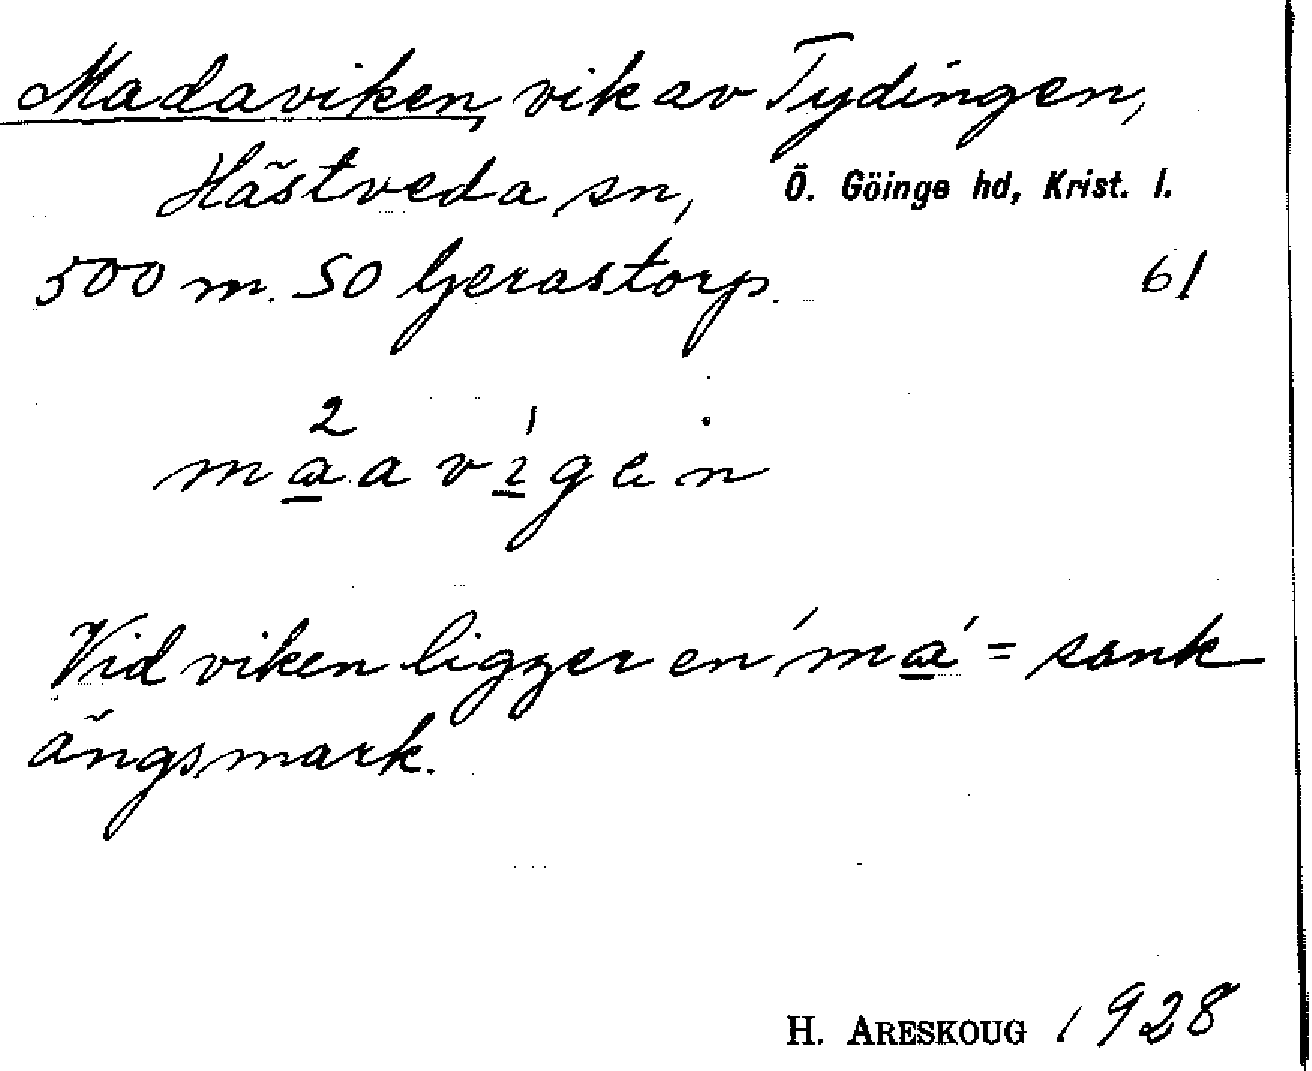 Madaviken, vik av Tydingen,
Hästveda sn, Ö. Göinge hd, Krist. l.
500 m. SO Gerastorp. 61
2 1
maavigen
Vid viken ligger en 'ma' = sank
ängsmark.
H. ARESKOUG 1928